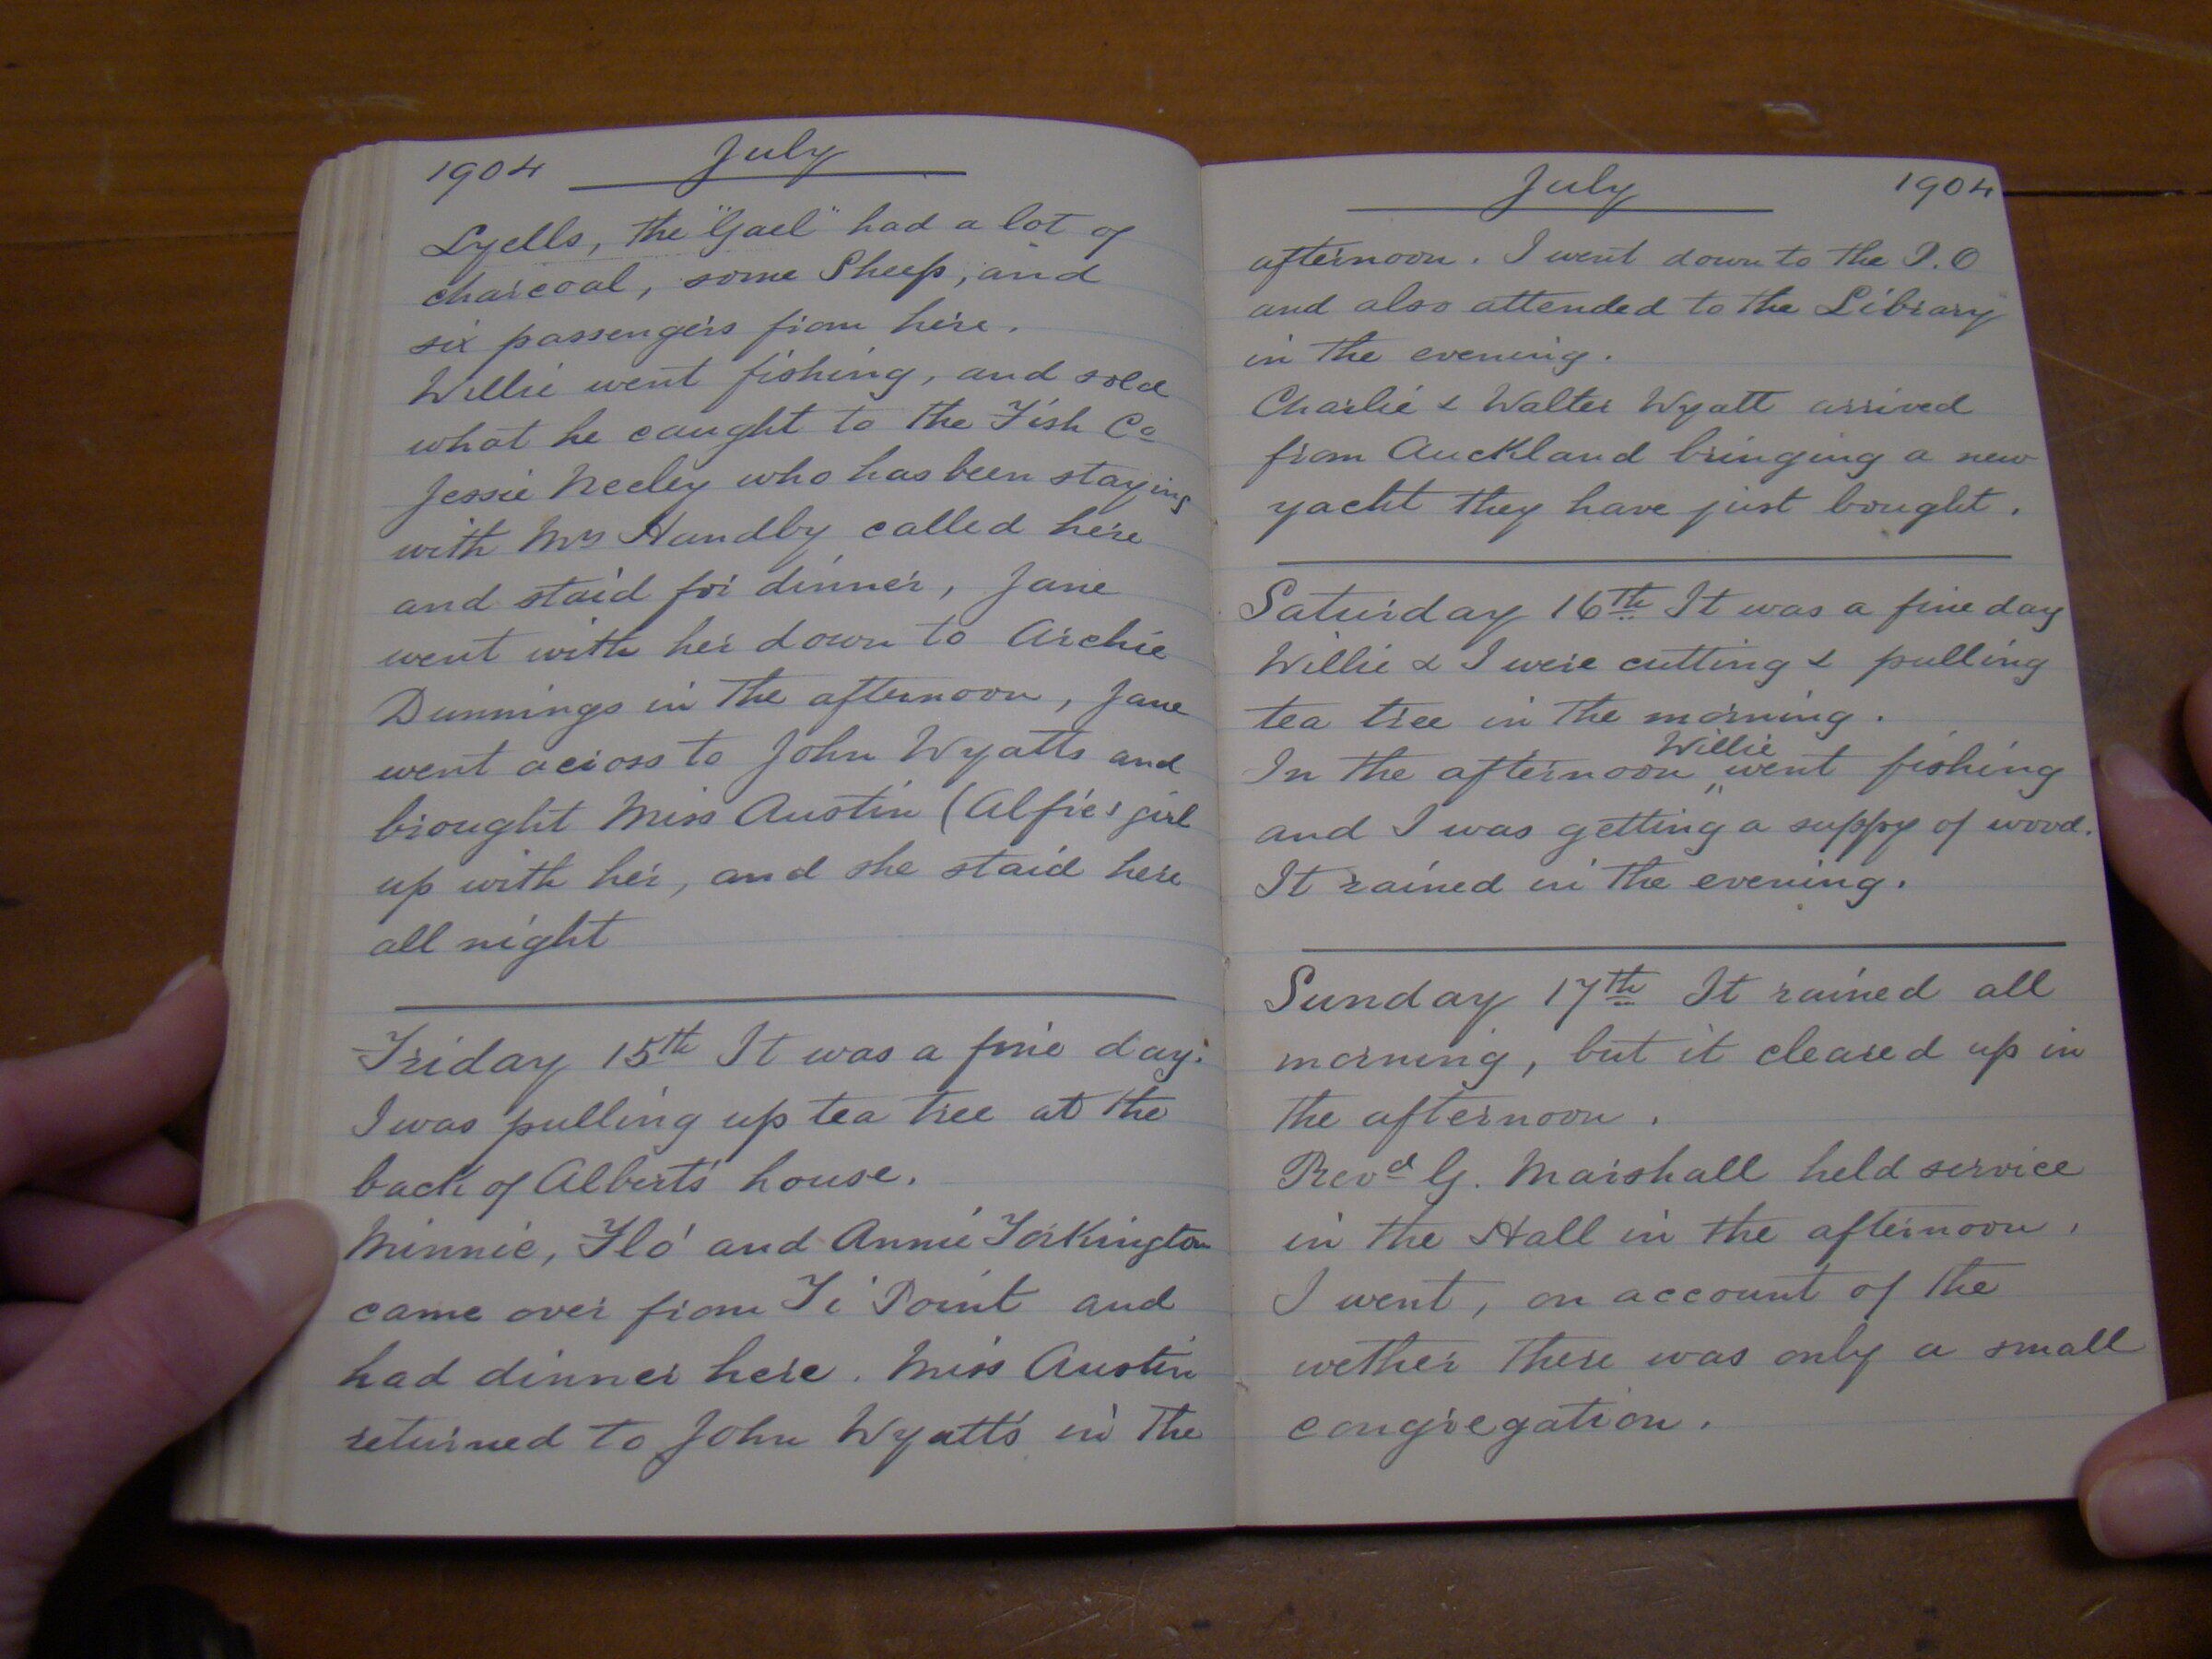 1904 July
Lyells, the "Gael" had a lot of
charcoal, some Sheep, and
six passengers from here.
Willie went fishing, and sold
what he caught to the Fish Co
Jessie Neeley who has been staying
with Mrs Handby called here
and staid for dinner, Jane
went with her down to Archie
Dunnings in the afternoon, Jane
went across to John Wyatts and
brought Miss Austin (Alfies girl
up with her, and she staid here
all night
Friday 15th It was a fine day.
I was pulling up tea tree at the
back of Albert's house.
Minnie, Flo' and Annie Torkington
came over from Ti Point and
had dinner here. Miss Austin
returned to John Wyatt's in the
July 1904
afternoon. I went down to the P.O
and also attended to the Library
in the evening.
Charlie & Walter Wyatt arrived
from Auckland bringing a new
yacht they have just bought.
Saturday 16th It was a fine day
Willie & I were cutting & pulling
tea tree in the morning.
Willie
In the afternoon " went fishing
and I was getting a suppy of wood.
It rained in the evening.
Sunday 17th It rained all
morning, but it cleared up in
the afternoon.
Revd G. Marshall held service
in the Hall in the afternoon.
I went, on account of the
wether there was only a small
congregation.